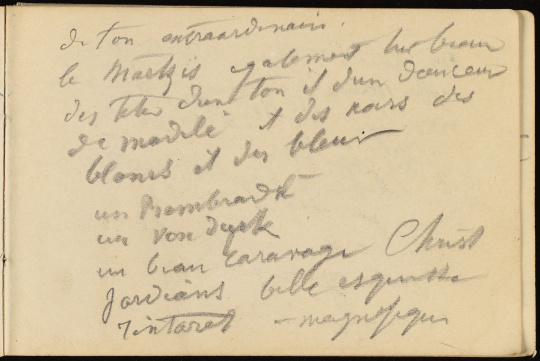 de ton extraordinaire.
le Matzis egalement tres beau
des tetes d'un ton et d'un douceur
de modelé et des noirs des
blancs et des bleus
un Rembrandt
un Von dyck
un beau Caravage Christ
Jordians belle esquisse
Tintoret – magnifique